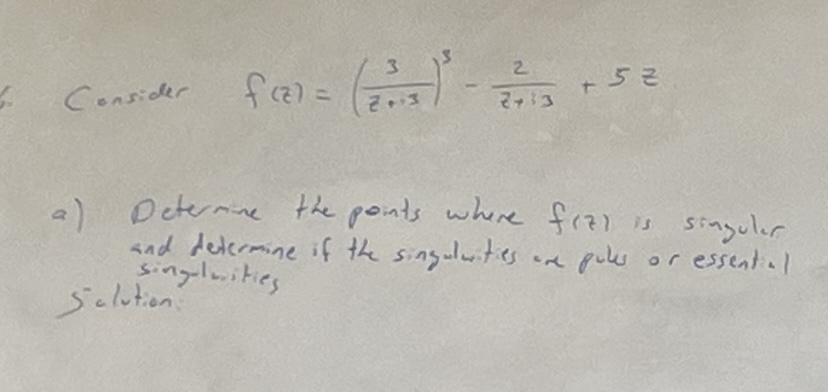 Consider f(z) = (3/(z+i3))^3 - 2/(z+i3) + 5z
a) Determine the points where f(z) is singular
and determine if the singularities are poles or essential
singularities
Solution: